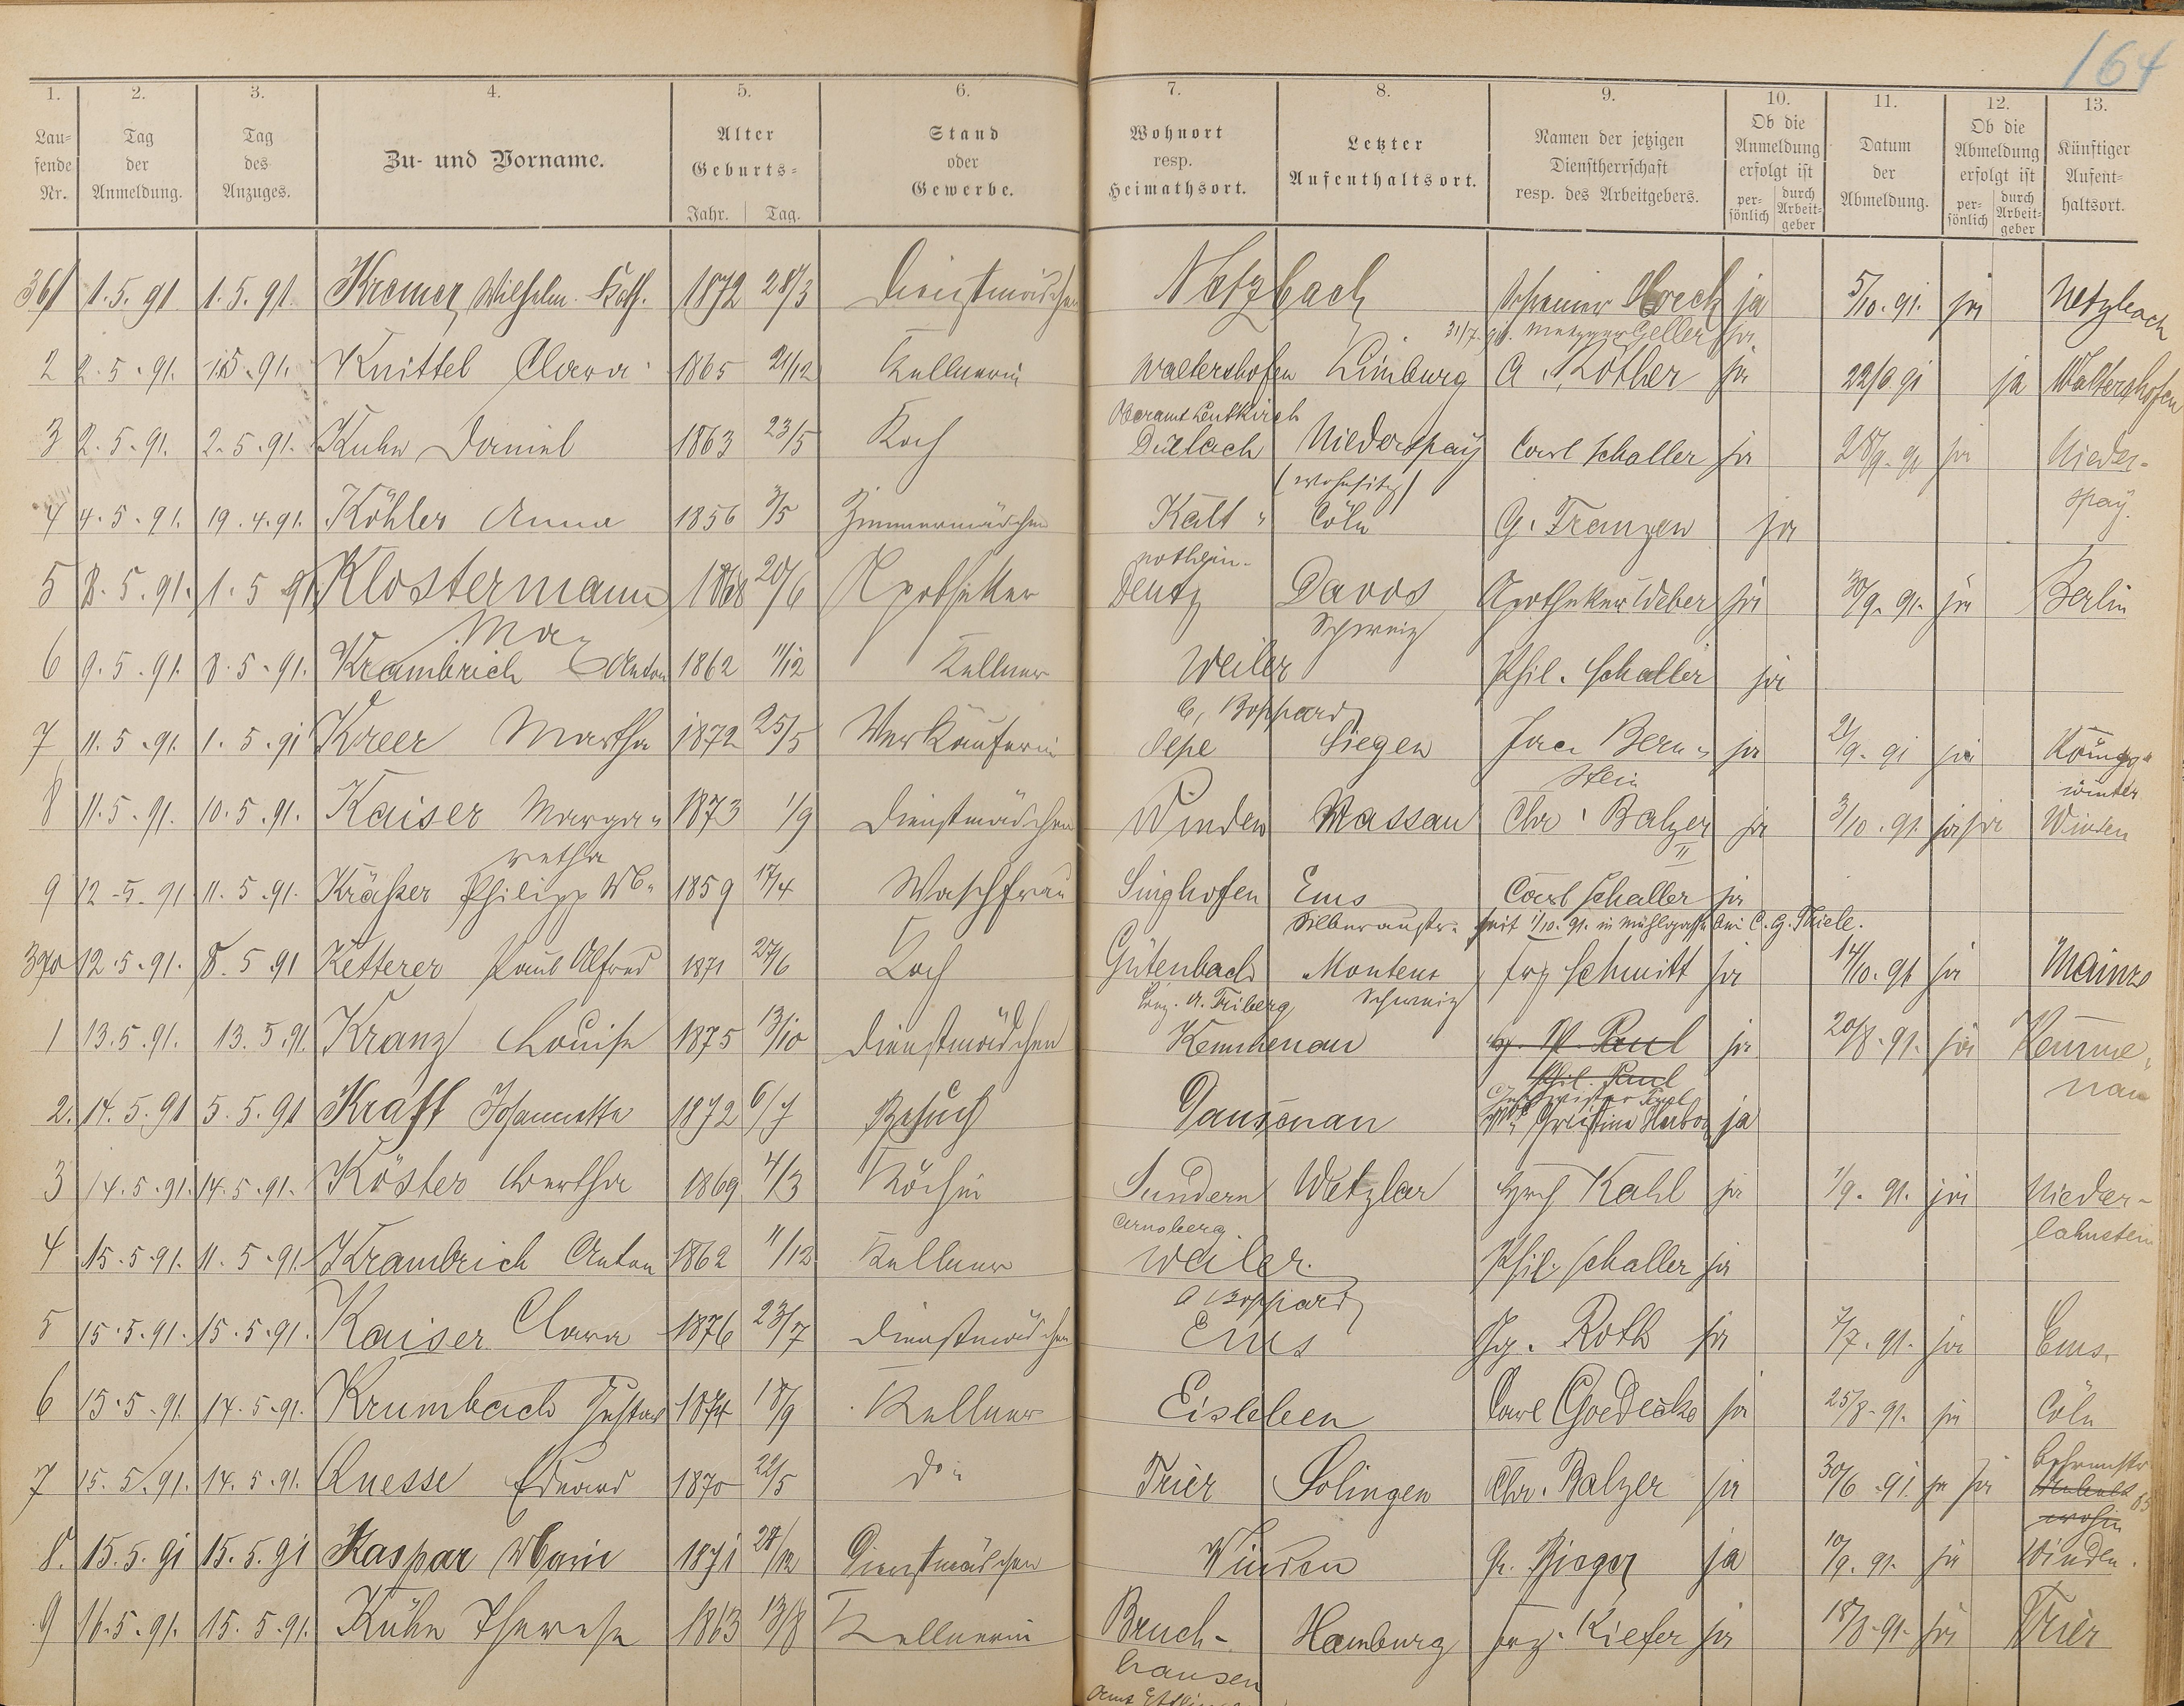 164
1. 2. 3. 4. 5. 6. 7. 8. 9. 10. 11. 12. 13.
Lau=
fende
Nr.
Tag
der
Anmeldung.
Tag
des
Anzuges.
Zu- und Vorname.
Alter
Geburts=
Jahr. Tag.
Stand
oder
Gewerbe.
Wohnort
resp.
Heimathsort.
Letzter
Aufenthaltsort.
Namen der jetzigen
Dienstherrschaft
resp. des Arbeitgebers.
Ob die
Anmeldung
erfolgt ist
per=
sönlich
durch
Arbeit=
geber
Datum
der
Abmeldung.
Ob die
Abmeldung
erfolgt ist
per=
sönlich
durch
Arbeit=
geber
Künftiger
Aufent=
haltsort.
361 1.5.91 1.5.91. Kremer Wilhelm. Kath. 1872 28/3 Dienstmädchen Netzbach Schreiner ja 5/10.91. ja Netzbach
31/7. Metzger Geller ja
2 2.5.91. 1.5.91. Knittel Clara 1865 21/12 Kellnerin Waltershofen Limburg ja ja Waltershofen
Oberamt Leutkirch
3 2.5.91. 2.5.91. Kuhn Daniel 1863 23/5 Koch Niederspay Carl Schaller ja 28/9.91 ja Nieder-
spay.
(Wohnsitz)
4 4.5.91. 19.4.91. Köhler Anna 1856 3/5 Zimmermädchen Kalt Cöln G. Franzen ja
5 8.5.91. 1.5.91 Klostermann 1868 20/6 Apotheker Deutz Davos Apotheker Weber ja 30/9.91. ja Berlin
Max
Schweiz
6 9.5.91. 8.5.91. Krambrich Anton 1862 11/12 Kellner Weiler Phil. Schaller ja
b, Boppard
7 11.5.91. 1.5.91 Kreer Martha 1872 25/5 Verkäuferin Oepe Siegen Jac. Bern- ja 21/9.91 ja Königs-
stein
winter
8 11.5.91. 10.5.91. Kaiser Marga- 1873 1/9 Dienstmädchen Winden Nassau Chr. Balzer ja 3/10.91. ja ja Winden
retha
II
9 12.5.91 11.5.91. Philipp 1859 17/4 Waschfrau Singhofen Ems Carl Schaller ja
Silberaustr. seit 1/10.91. in Mühlgasse bei C. G. Thiele.
370 12.5.91. 8.5.91 Ketterer Paul Alfred 1871 27/6 Koch Gütenbach Schmitt ja 14/10.91 ja Mainz
A. Triberg Schweiz
1 13.5.91. 13.5.91. Kranz Louise 1875 13/10 Dienstmädchen Kemmenau Paul ja 20/8.91. ja Kemme-
nau
Phil. Paul
2. 14.5.91 5.5.91 Kraft Johannette 1872 6/7 Besuch Dausenau Christine ja
3 14.5.91. 14.5.91. Köster Bertha 1869 4/3 Köchin Sundern Wetzlar Kahl ja 1/9.91. ja Nieder-
lahnstein
Arnsberg
4 15.5.91. 11.5.91. Krambrich Anton 1862 11/12 Kellner Weiler. Phil. Schaller ja
Boppard
5 15.5.91. 15.5.91. Kaiser Clara 1876 23/7 Dienstmädchen Ems Roth ja 7/7.91. ja Ems.
6 15.5.91. 14.5.91. Krumbach Gustav 1874 18/9 Kellner Eisleben Carl Goedecke ja 25/8.91. ja Cöln
7 15.5.91. 14.5.91. Eduard 1870 22/5 do Trier Solingen Chr. Balzer ja 30/6.91 ja ja
8. 15.5.91 15.5.91 Kaspar Marie 1871 Dienstmädchen Winden ja 10/9.91. ja Winden.
9 16.5.91. 15.5.91. Kühn Therese 1863 13/8 Kellnerin Bruch- Hamburg Kiefer ja 18/8.91. ja Trier
hausen
Amt